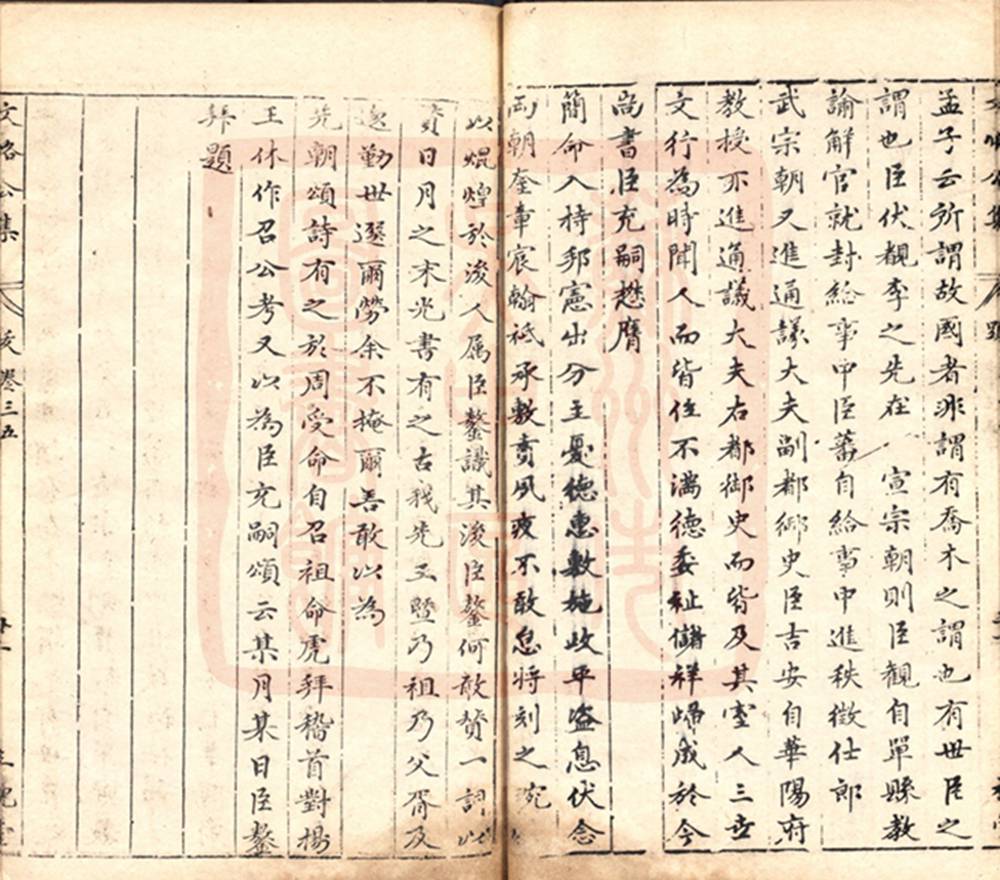 孟子云所謂故國者非謂有喬木之謂也有世臣之
謂也臣伏覩李之先在 宣宗朝則臣觀自單縣教
諭解官就封給事中臣蕃自給事中進秩徵仕郎
武宗朝又進通議大夫副都御史臣吉安自華陽府
教授亦進通議大夫右都御史而皆及其室人三世
文行為時聞人而皆位不滿德委祉儲祥歸成於今
尚書臣充嗣懋膺
簡命入持邦憲出分主憂德惠敷施政平盜息伏念
兩朝奎章宸翰祗承敷賁夙夜不敢怠將刻之琬
以焜煌於後人属臣鏊識其後臣鏊何敢贊一詞以
賁日月之末光書有之古我先王暨乃祖乃父胥及
逸勤世選爾勞余不掩爾善敢以為
先朝頌詩有之於周受命自召祖命虎拜稽首對揚
王休作召公考又以為臣充嗣頌云某月某日臣鏊
拜題
文恪公集 卷三五